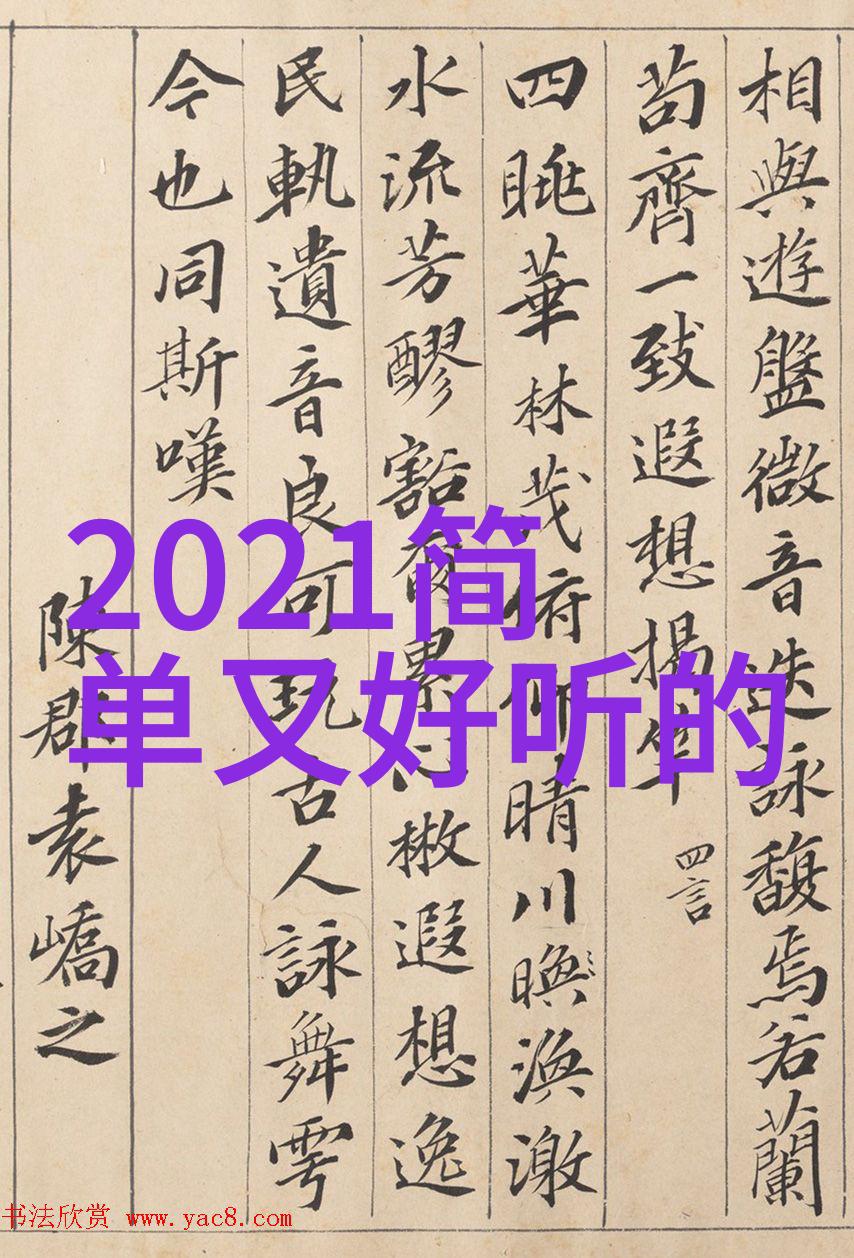 相與遊盤微音迭詠馥焉若蘭
苟齊一致遐想揭竿 四言
四眺華林茂俯仰晴川渙渙激
水流芳醪豁爾累心楸遐想逸
民軌遺音良可玩古人詠舞雩
今也同斯嘆
陳郡袁嶠之
2021简
单又好听的
书法欣赏 www.yac8.com